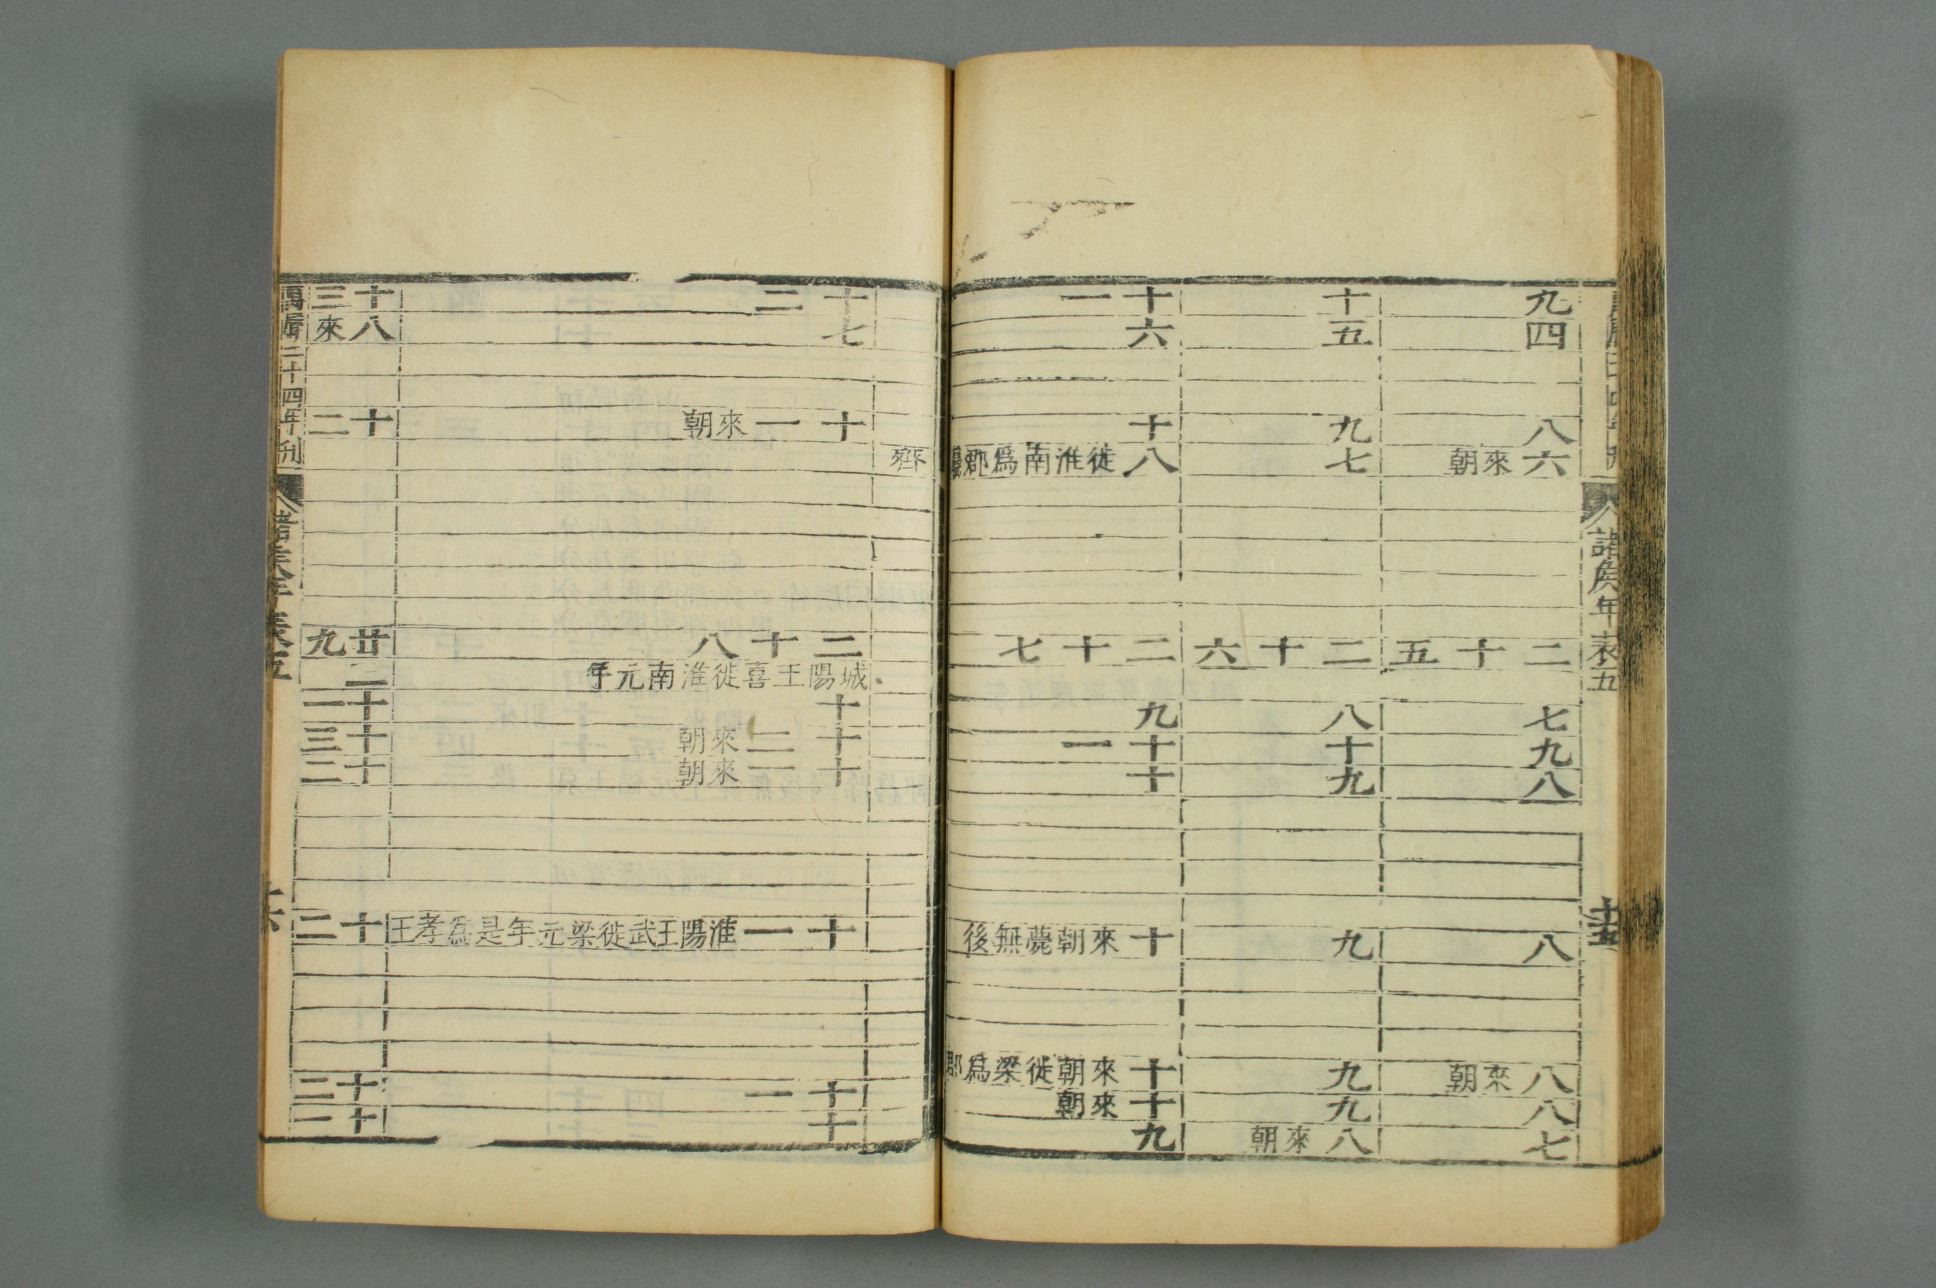 諸侯年表五
十五
九
四
八
六 來朝
二十五
七
九
八
八
八 來朝
八
七
十
五
九
七
二十六
八
十
九
九
九
九
八 來朝
十一
六
十
八 徙淮南爲郡
二十七
九
十一
十
十 來朝薨無後
十 來朝徙梁爲郡
十 來朝
九
齊
十二
七
十一 來朝
二十八
城陽王喜徙淮南元年
十
十二 來朝
十一 來朝
十一 淮陽王武徙梁元年是爲孝王
十一
十
十三
八 來
十二
廿九
二
十一
十三
十二
十二
十二
十一
萬曆二十四年刊
諸侯年表五
十六